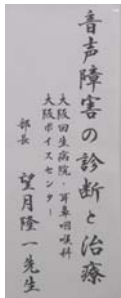 音声障害の診断と治療
大阪回生病院・耳鼻咽喉科
大阪ボイスセンター
部長 望月隆一先生